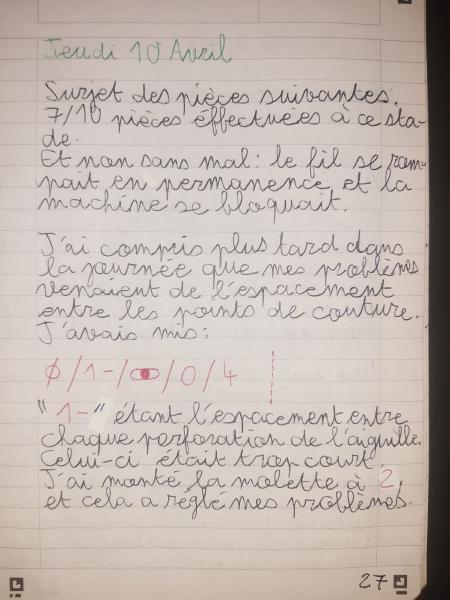 Jeudi 10 Avril
Surjet des pièces suivantes.
7/10 pièces éffectuées à ce sta-
de.
Et non sans mal: le fil se rom-
pait en permanence et la
machine se bloquait.
J'ai compris plus tard dans
la journée que mes problèmes
venaient de l'espacement
entre les points de couture.
J'avais mis:
Ø/1-/ /0/4
"1-" étant l'espacement entre
chaque perforation de l'aiguille.
Celui-ci était trop court
J'ai monté la molette à 2,
et cela a réglé mes problèmes.
27